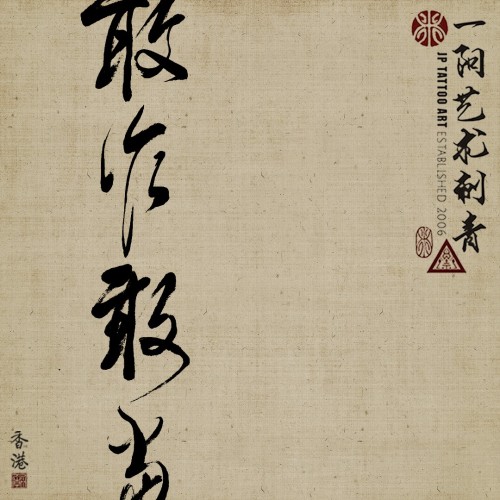 一阳艺术刺青
JP TATTOO ART ESTABLISHED 2006
敢作敢当
香港